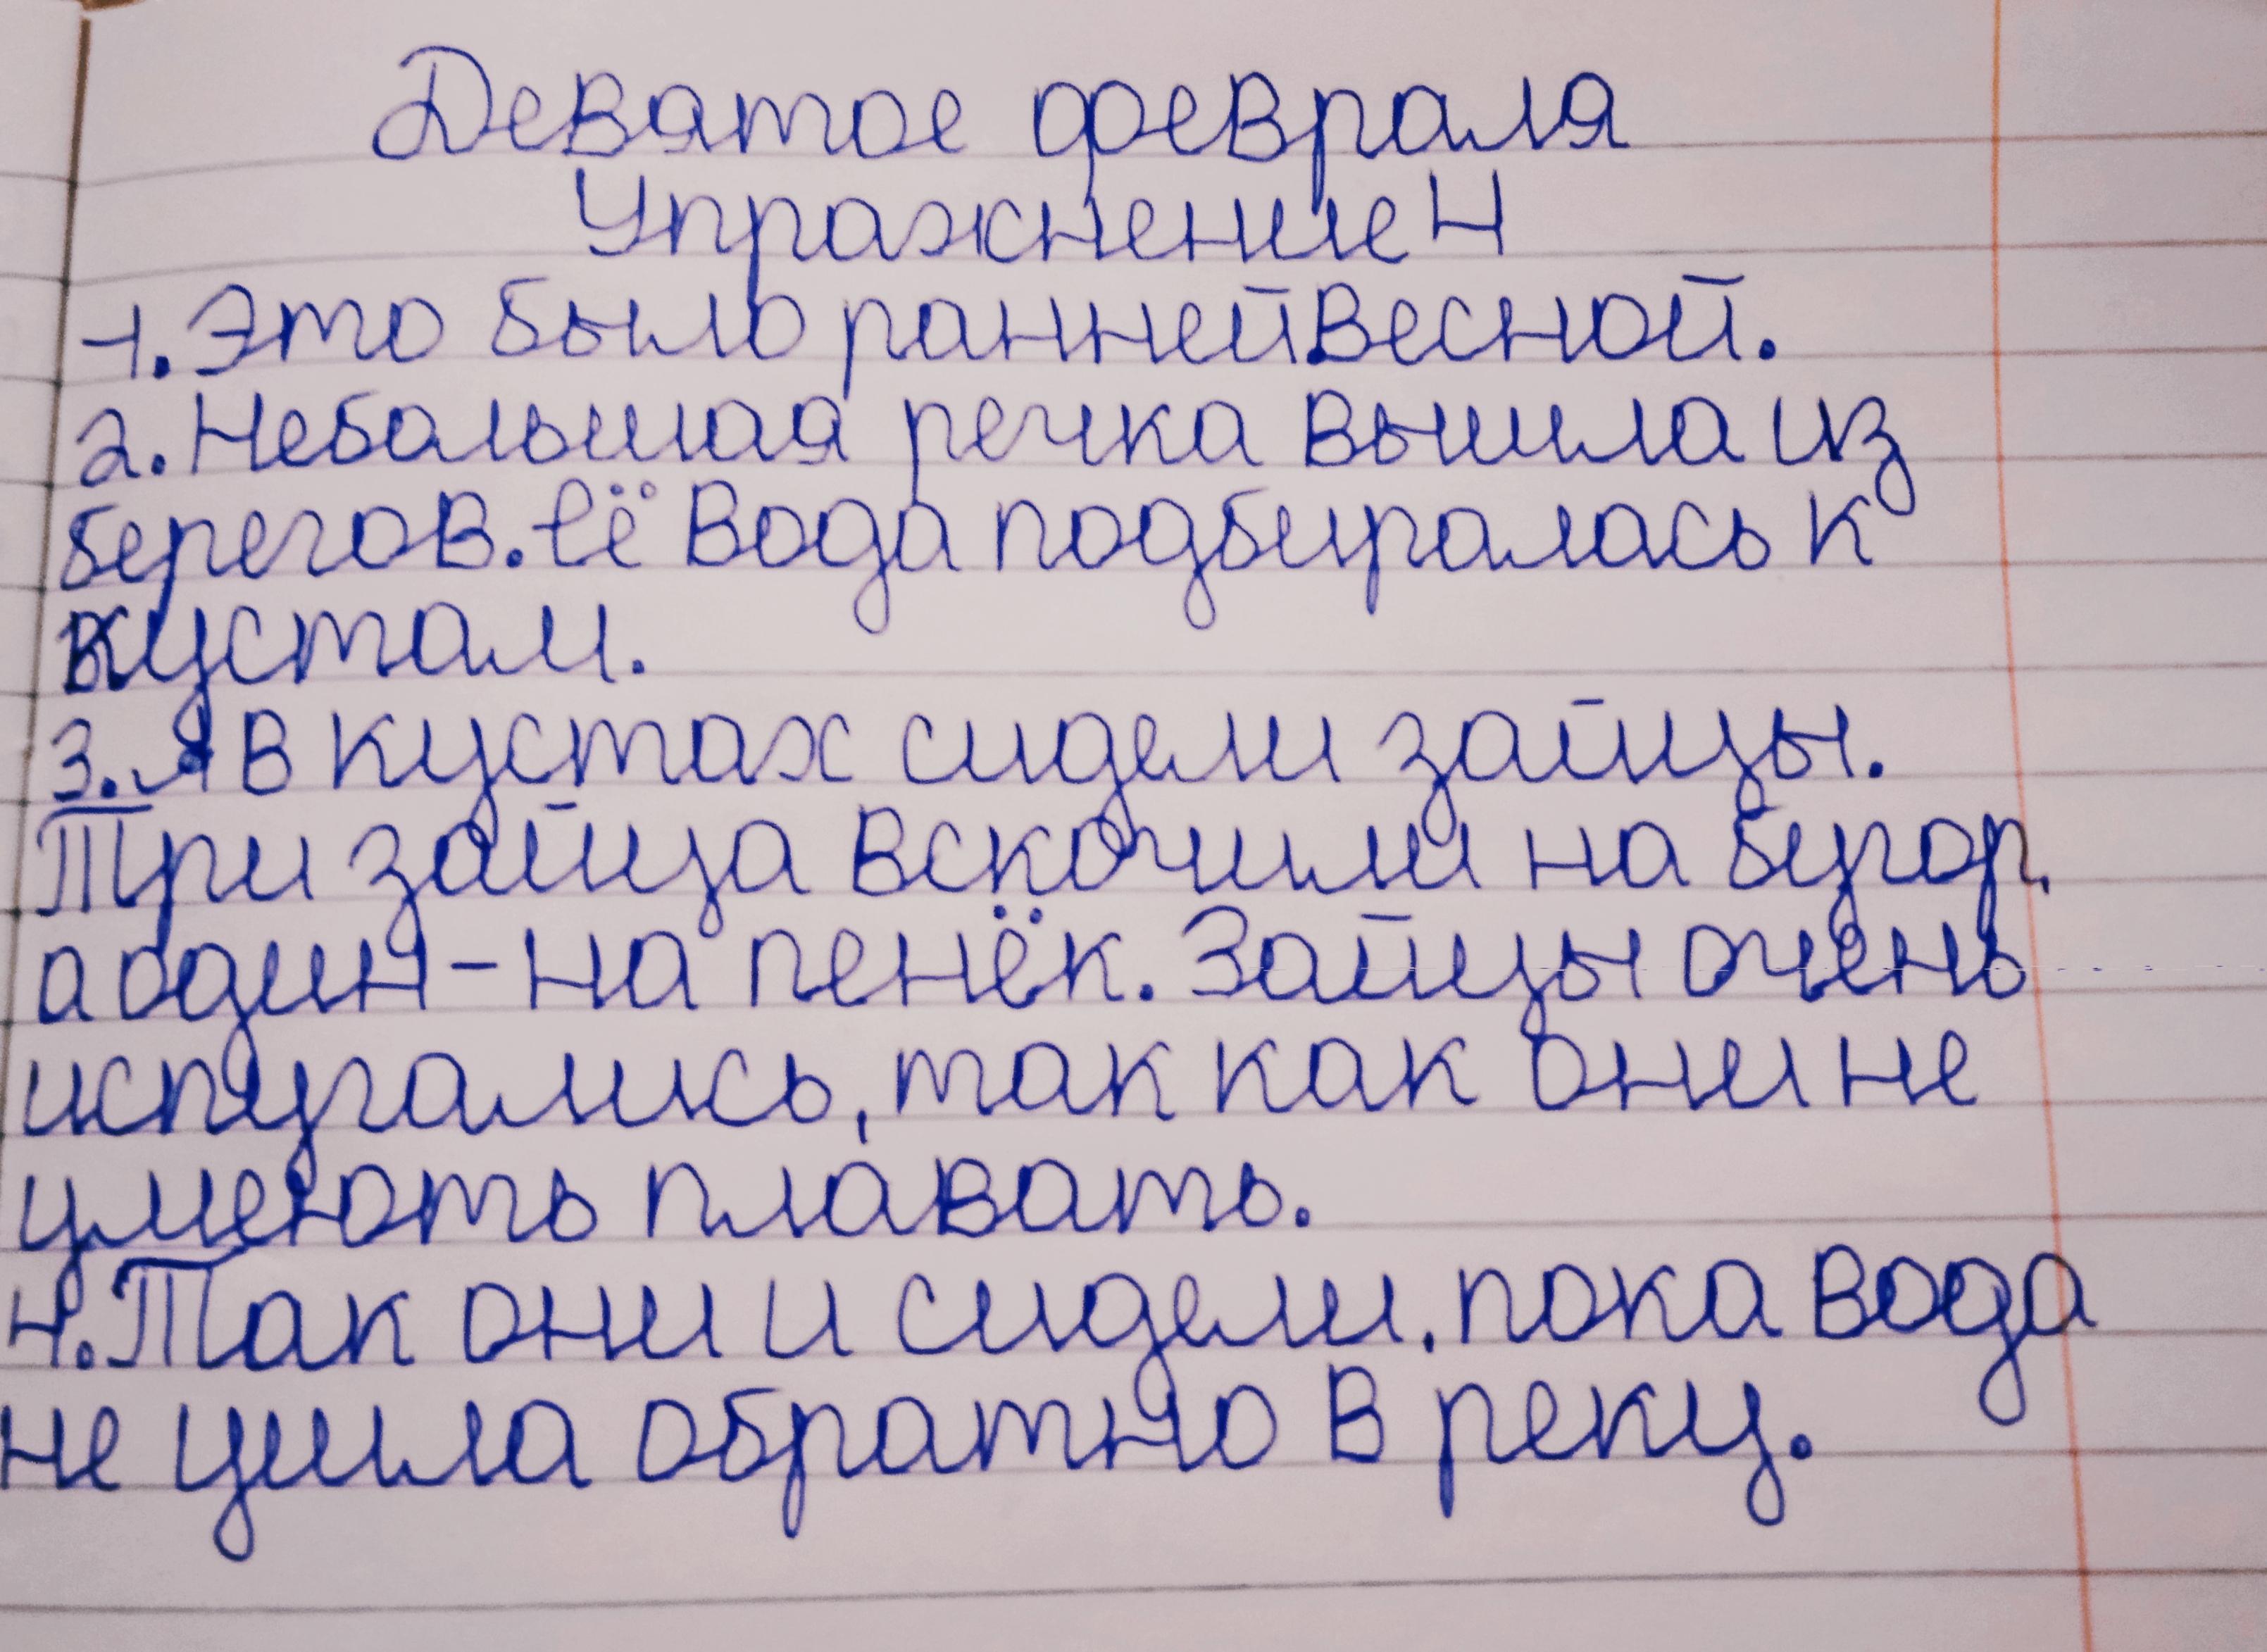 Девятое февраля
Упражнение 4
1. Это было ранней весной.
2. Небольшая речка вышла из
берегов. Её вода подбиралась к
кустам.
3. А в кустах сидели зайцы.
Три зайца вскочили на бугор,
а один - на пенёк. Зайцы очень
испугались, так как они не
умеють плавать.
4. Так они и сидели, пока вода
не ушла обратно в реку.